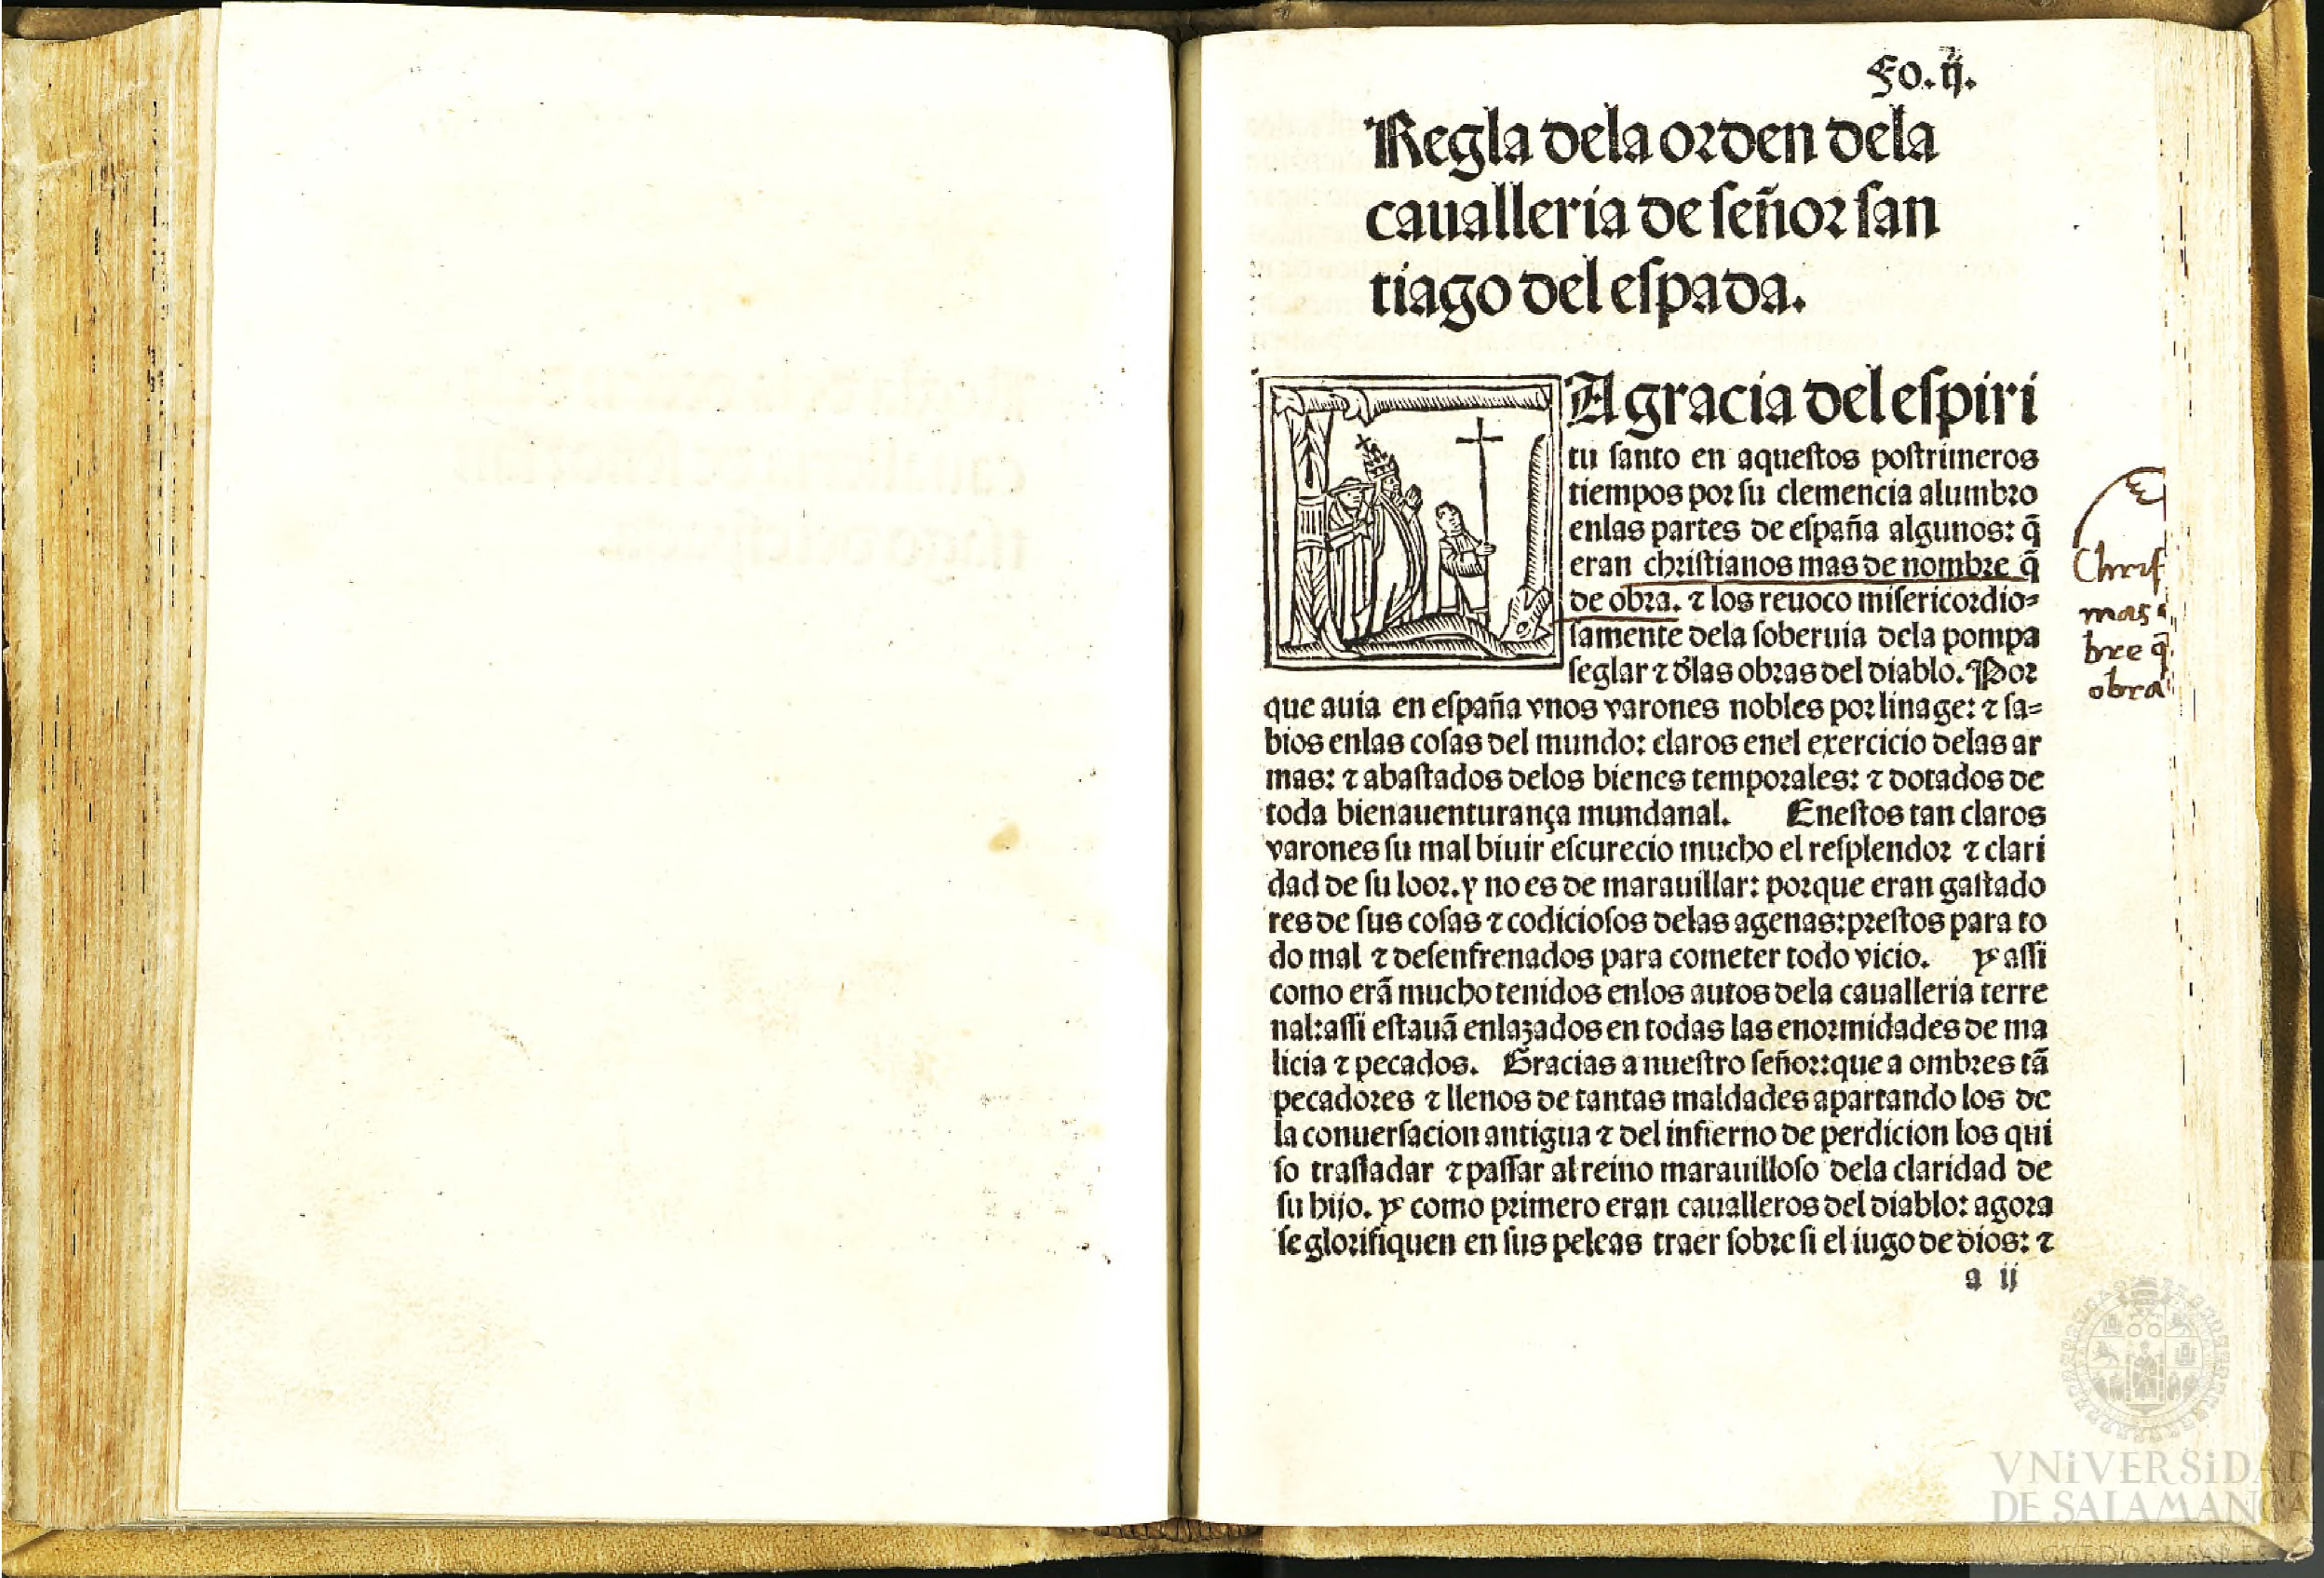 Fo. ij.
Regla dela orden dela
caualleria de señor san
tiago del espada.
LA gracia del espiri
tu santo en aquestos postrimeros
tiempos por su clemencia alumbro
enlas partes de españa algunos: q̃
eran christianos mas de nombre q̃
de obra. ⁊ los reuoco misericordio-
samente dela soberuia dela pompa
seglar ⁊ d̃las obras del diablo. Por
que auia en españa vnos varones nobles por linage: ⁊ sa-
bios enlas cosas del mundo: claros enel exercicio delas ar
mas: ⁊ abastados delos bienes temporales: ⁊ dotados de
toda bienauenturança mundanal. Enestos tan claros
varones su mal biuir escurecio mucho el resplendor ⁊ clari
dad de su loor. y no es de marauillar: porque eran gastado
res de sus cosas ⁊ codiciosos delas agenas: prestos para to
do mal ⁊ desenfrenados para cometer todo vicio. Y assi
como erã mucho tenidos enlos autos dela caualleria terre
nal: assi estauã enlazados en todas las enormidades de ma
licia ⁊ pecados. Gracias a nuestro señor: que a ombres tã
pecadores ⁊ llenos de tantas maldades apartando los de
la conuersacion antigua ⁊ del infierno de perdicion los qui
so trasladar ⁊ passar al reino marauilloso dela claridad de
su hijo. Y como primero eran caualleros del diablo: agora
se glorifiquen en sus peleas traer sobre si el iugo de dios: ⁊
a ij
Chris
mas
bre q̃
obra
VNiVERSiDAD
DE SALAMANCA
GREDOS.USAL.ES